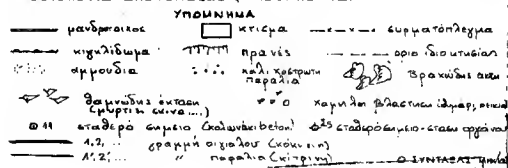 ΥΠΟΜΝΗΜΑ
μανδρότοιχος κτίσμα συρματόπλεγμα
κιγκλίδωμα πρανές όριο ιδιοκτησίας
αμμουδιά χαλικόστρωτη παραλία βραχώδης ακτή
θαμνώδης έκταση (μυρτιές σχίνα...) χαμηλή βλάστηση
⊙ 11 σταθερό σημείο (κολωνάκι beton) 25 σταθερό σημείο - στάση οργάνου
1, 2, .. γραμμή αιγιαλού (κόκκινη)
1', 2', .. " παραλία (κίτρινη) Ο ΣΥΝΤΑΞΑΣ